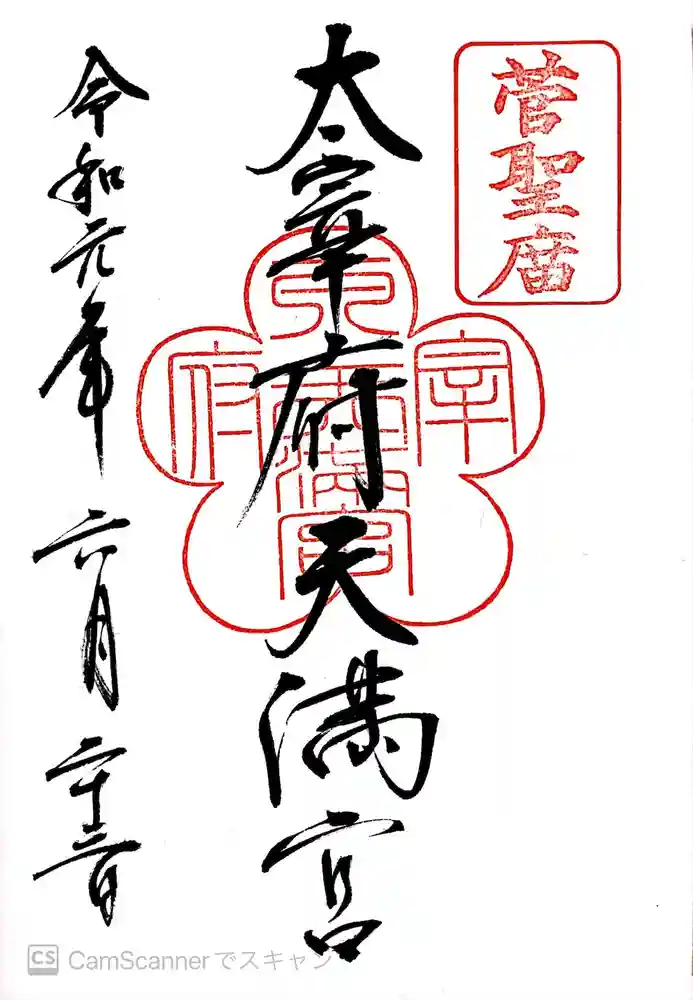 菅聖廟
太宰府天満宮
令和元年六月二十三日
CS CamScannerでスキャン